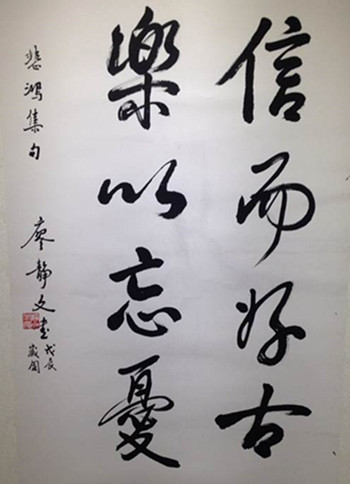 信而好古
樂以忘憂
悲鴻集句
廖靜文書
戊辰
歲闌